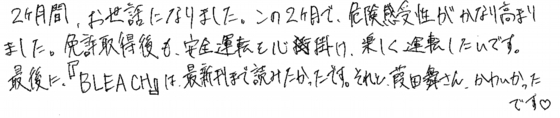 2ヶ月間、お世話になりました。この2ヶ月で、危険感受性がかなり高まり
ました。免許取得後も、安全運転を心掛け、楽しく運転したいです。
最後に、『BLEACH』は最新刊まで読みたかったです。それと、葭田舞さん、かわいかった
です♡